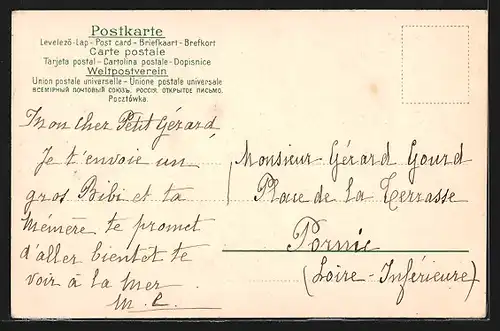 Postkarte
Levelező-Lap - Post card - Briefkaart - Brefkort
Carte postale
Tarjeta postal - Cartolina postale - Dopisnice
Weltpostverein
Union postale universelle - Unione postale universale
ВСЕМІРНЫЙ ПОЧТОВЫЙ СОЮЗЪ. РОССІЯ. ОТКРЫТОЕ ПИСЬМО.
Pocztówka.
Mon cher Petit Gérard,
Je t'envoie un
gros Bibi et ta
Mémère te promet
d'aller bientot te
voir à la Mer
M. C.
Monsieur Gérard Gourd
Place de la Terrasse
Pornic
(Loire-Inférieure)